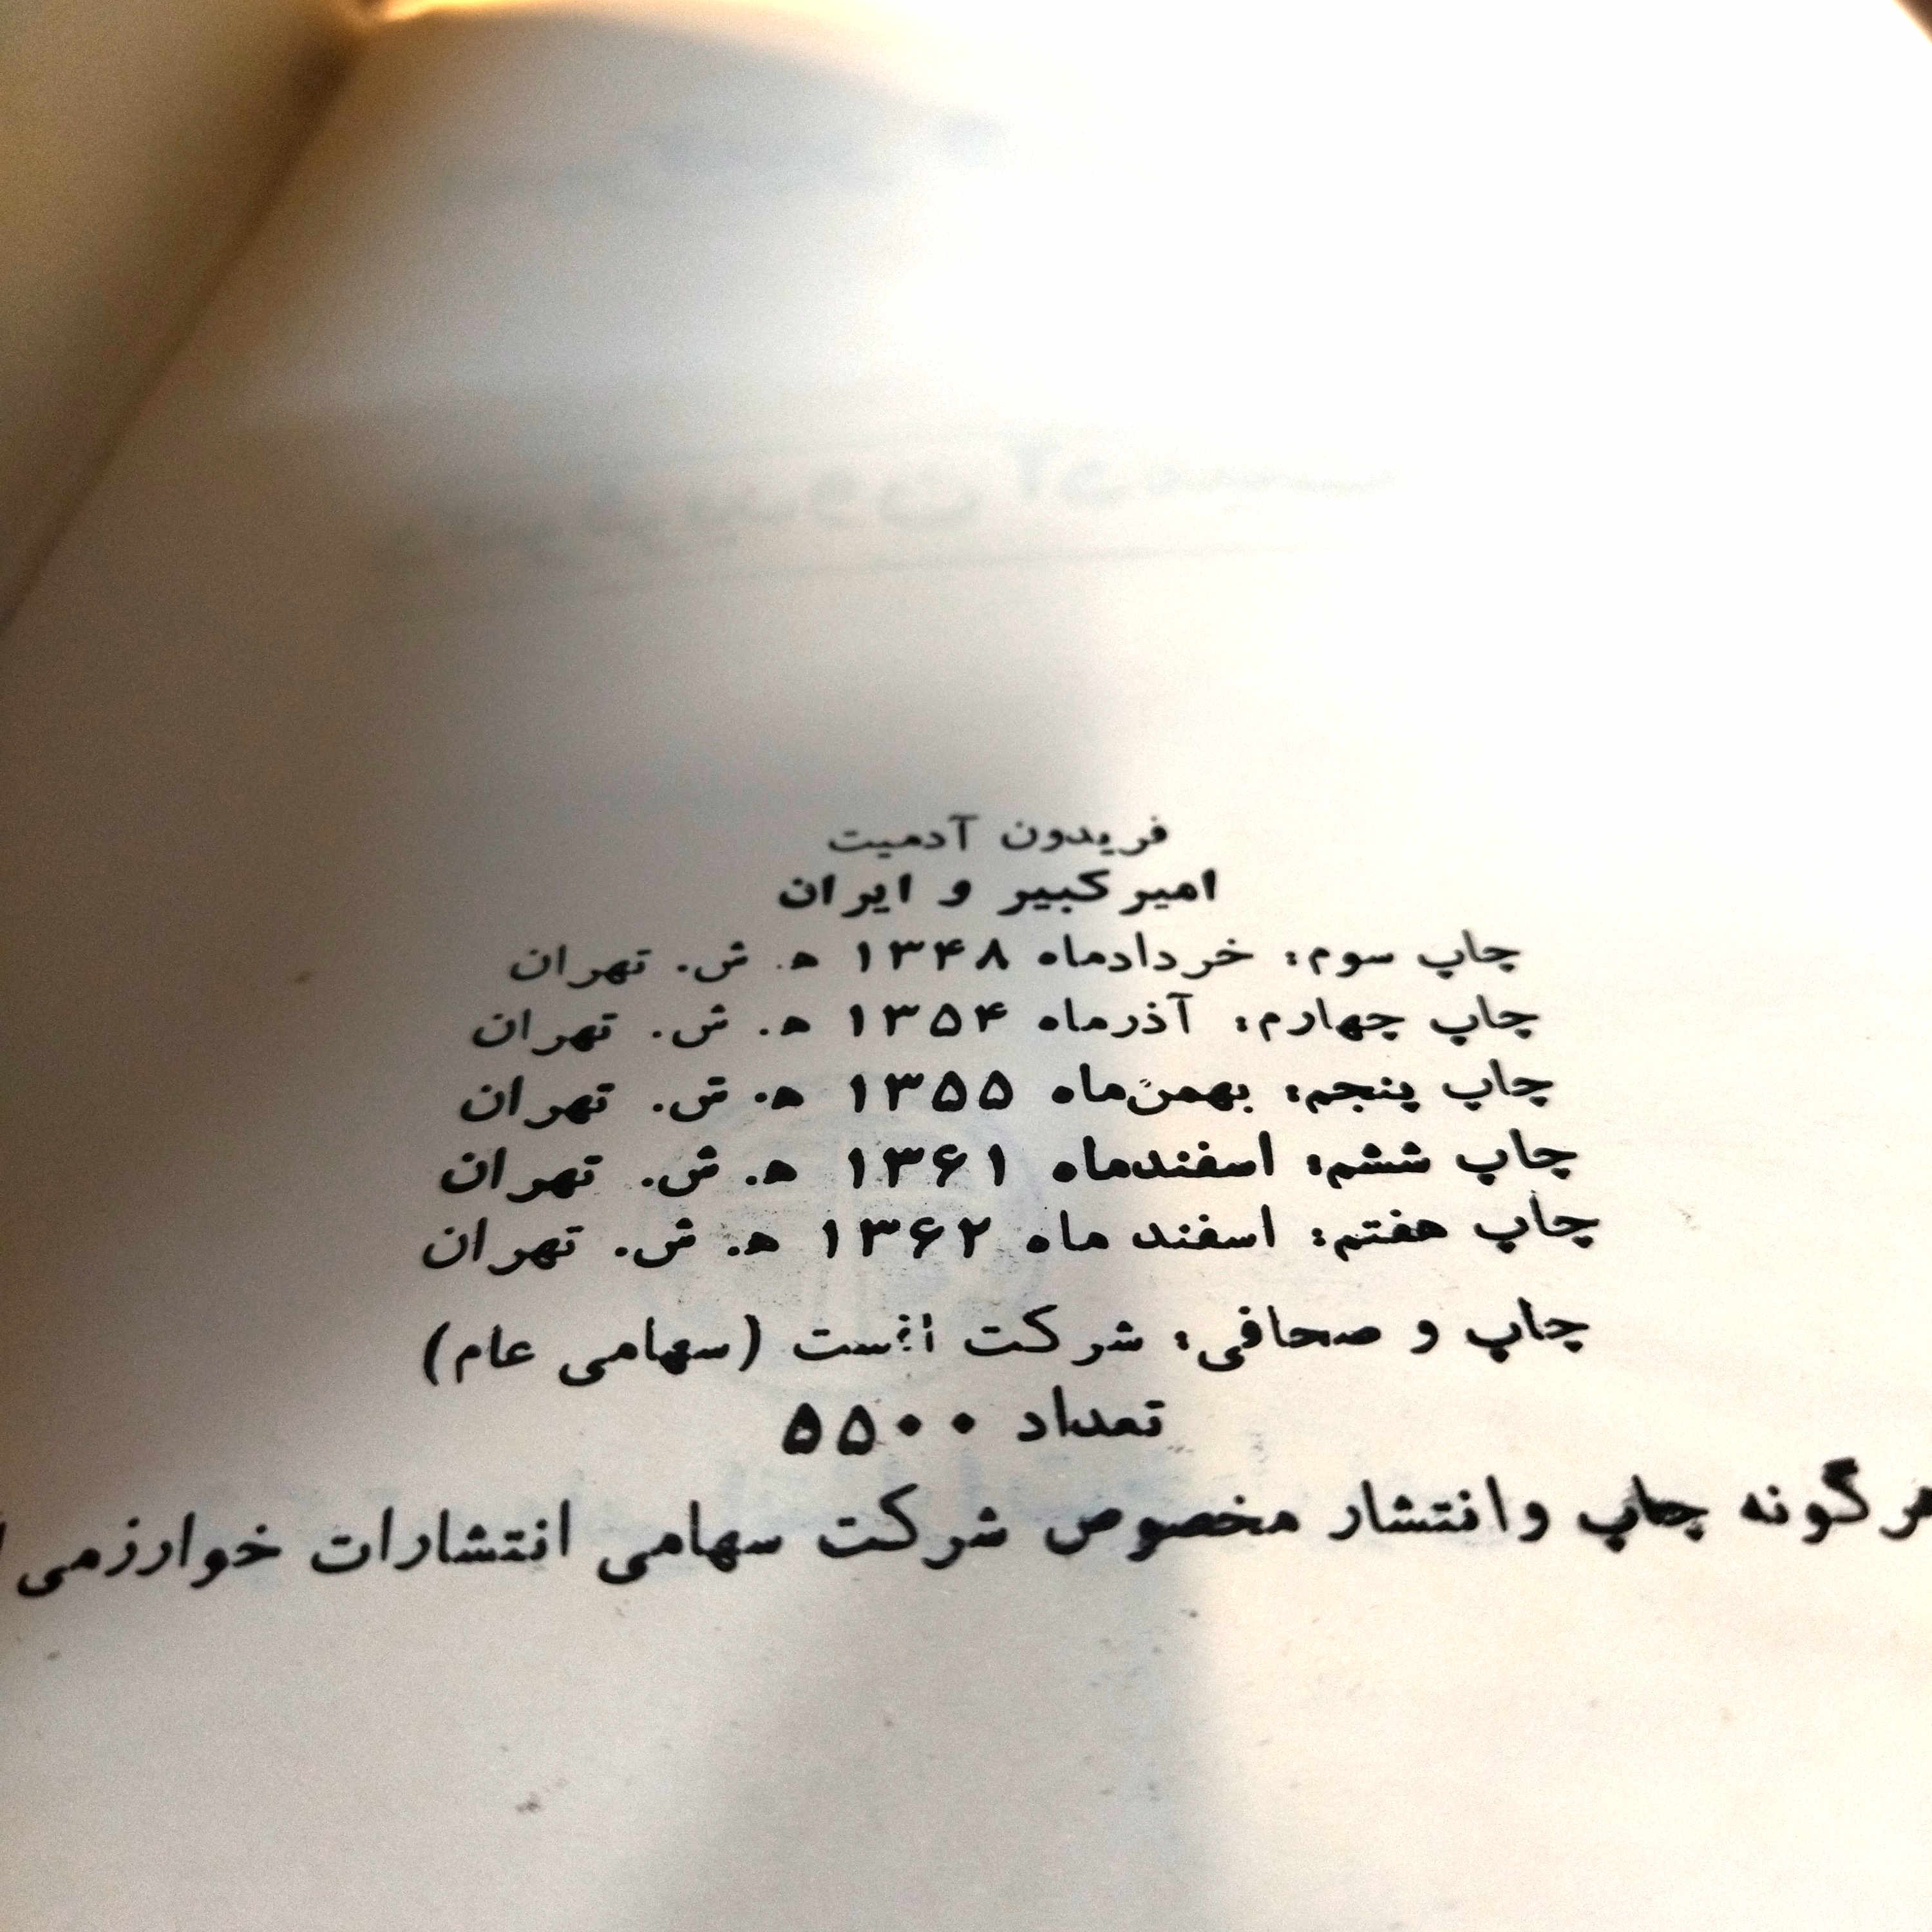 فریدون آدمیت
امیرکبیر و ایران
چاپ سوم: خردادماه ۱۳۴۸ ه. ش. تهران
چاپ چهارم: آذرماه ۱۳۵۴ ه. ش. تهران
چاپ پنجم: بهمن‌ماه ۱۳۵۵ ه. ش. تهران
چاپ ششم: اسفندماه ۱۳۶۱ ه. ش. تهران
چاپ هفتم: اسفند ماه ۱۳۶۲ ه. ش. تهران
چاپ و صحافی: شرکت افست (سهامی عام)
تعداد ۵۵۰۰
هرگونه چاپ وانتشار مخصوص شرکت سهامی انتشارات خوارزمی